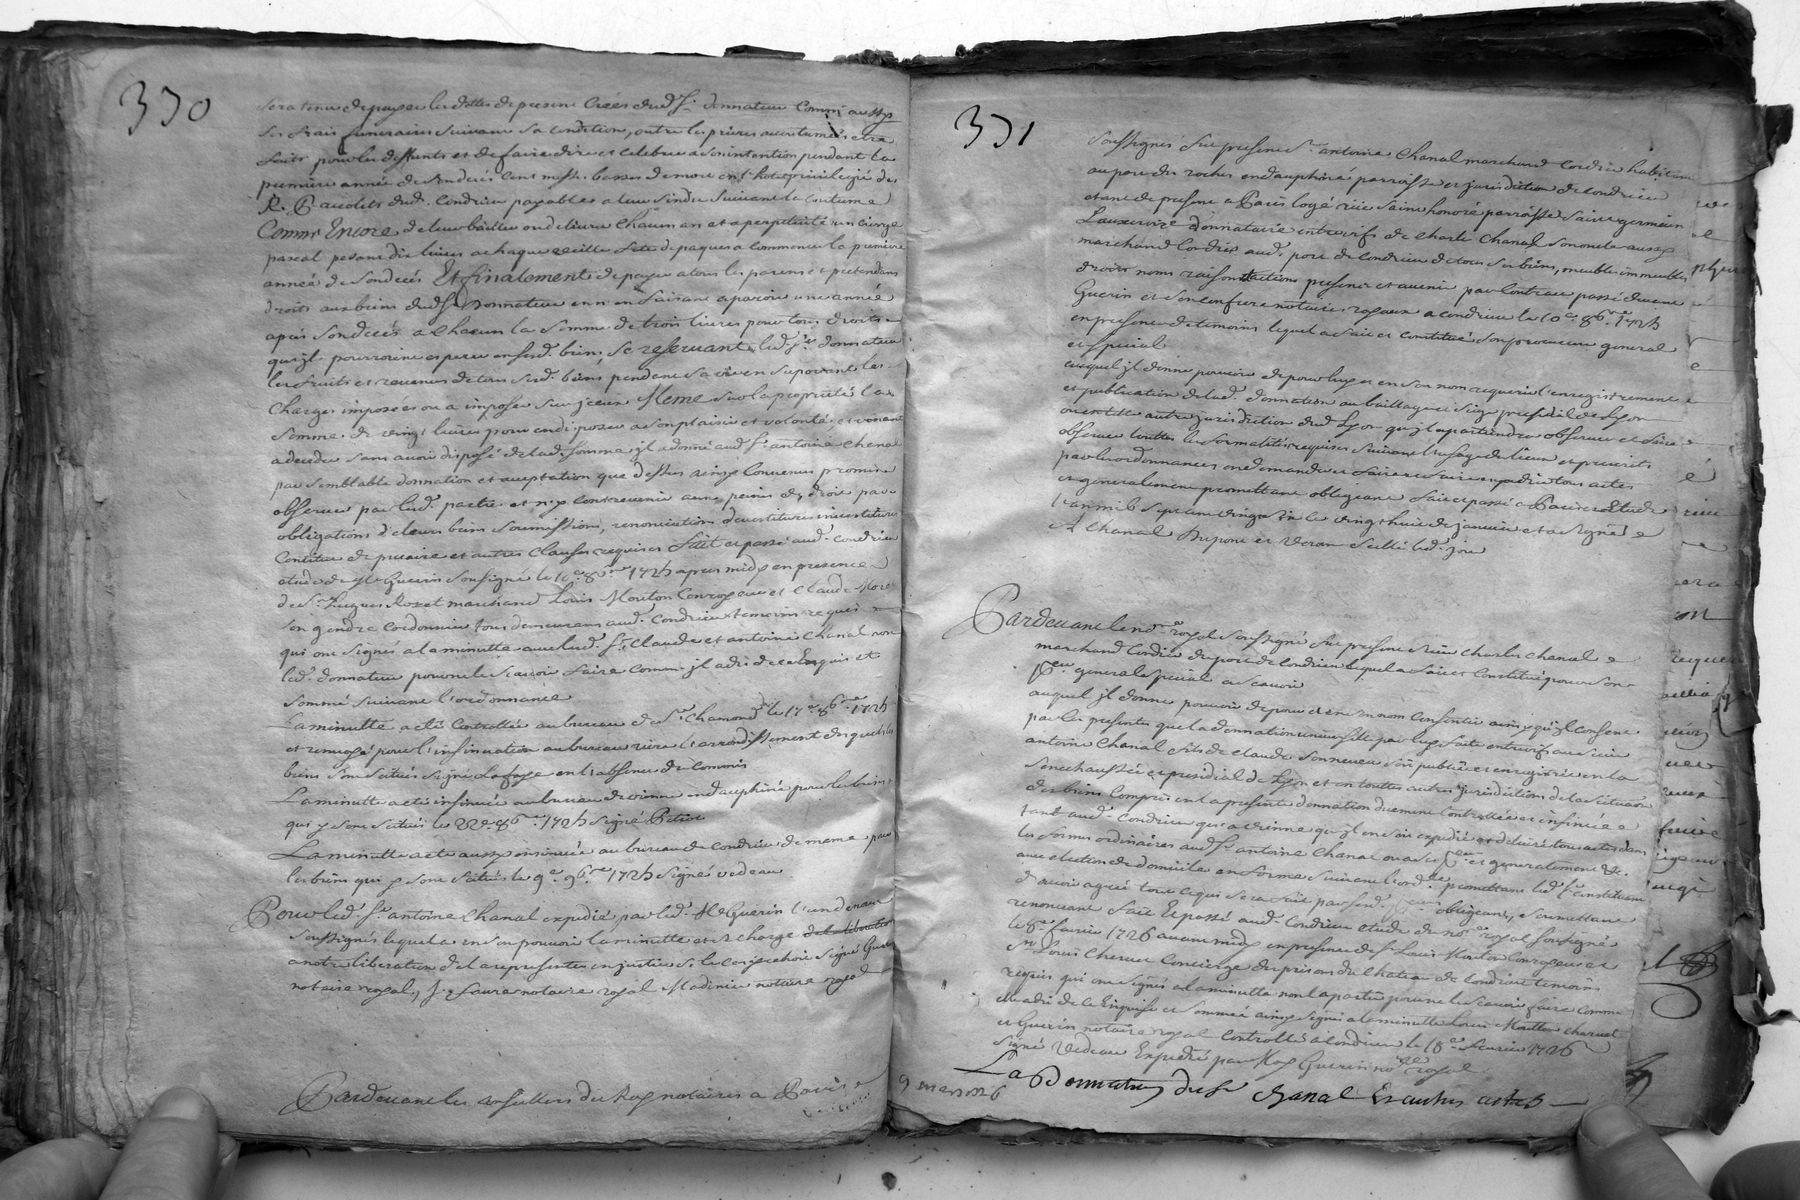 330
sera tenu de payer les dettes de presens creés dud. Sr. donnateur Comme aussy
ses frais funeraires suivant sa condition, outre les prieres accoutumées etre
faites pour les deffunts et de faire dire et celebrer a son intention pendant la
premiere année de son deces cent messes basses de mort en l'hotel privilegié des
R. P. recolets dud. Condrieu payables a leur sindic suivant la coutume
Comme Encore de leur bailler ou delivrer chacun an et a perpetuité un cierge
pascal pesant dix livres a chaque veille fete de paques a commencer la premiere
année de son deces Et finalement de payer a tous les parens et pretendans
droits aux biens dud. Sr. Donnateur en n'en faisant aparoir une année
apres son deces a chacun la somme de trois livres pour tous droits
qu'jls pourroient esperer en sesd. biens, se reservant led. Sr. donnateur
les fruits et revenus de tous sesd. biens pendant sa vie en suportant les
charges imposées ou a imposer sur jceux Meme sur la propriété la
somme de vingt livres pour en disposer a son plaisir et volonté et venant
a deceder sans avoir disposé de lad. somme jl a donné aud. Sr. antoine chanal
par semblable donnation et acceptation que dessus ainsy Convenu promis
observer par lesd. parties et n'y contrevenir aux peines de droit par
obligations de leurs biens soumissions, renonciations devestitures investitures
Constitut de precaire et autres clauses requises fait et passé aud. Condrieu
etude de Me Guerin soussigné le 10e. 8bre. 1725 apres midy en presence
de Sr. Jacques Rozet marchand Louis Mouton Conroyeur et Claude More
son gendre cordonnier tous demeurans aud. Condrieu temoins requis
qui ont signés a la minutte avec lesd. Srs. Claude et antoine chanal non
led. donnateur pour ne le scavoir faire comme jl a dit de ce Enquis et
sommé suivant l'ordonnance
La minutte a eté Controllée au bureau de St. Chamond le 17e. 8bre. 1725
et renvoyé pour l'insinuation au bureau riere l'arrondissement desquels les
biens sont scitués signé Lafaye en l'absence du commis
La minutte a eté insinuée au bureau de vienne en dauphiné pour les biens
qui y sont scitués le 22e. 8bre. 1725 signé Petier
La minutte a eté aussy insinuée au bureau de Condrieu de meme pour
les biens qui y sont scitués le 9e. 9bre. 1725 signé vedeau
Pour led. Sr. antoine Chanal expedié par led. Me Guerin l'un de nous
soussignés lequel a en son pouvoir la minutte et se charge de la liberation
a notre liberation de la representer en justice si le cas y echoit signé Guerin
notaire royal, J. faure notaire royal Madinier notaire royal
Pardevant les conseillers du Roy notaires a Paris
331
soussignés fut present Sr. antoine Chanal marchand Cordier habitant
au port des roches en dauphiné parroisse et jurisdiction de Condrieu
etant de present a Paris logé rüe saint honoré parroisse saint germain
Lauxerrois donnataire entrevifs de charle Chanal son oncle aussy
marchand Cordier aud. port de Condrieu de tous ses biens, meuble immeubles
droits noms raisons actions presents et avenir par Contract passé devant
Guerin et son confrere notaires royaux a Condrieu le 10e. 8bre. 1725
en presence de temoins lequel a fait et constitué son procureur general
et special
auquel jl donne pouvoir de pour luy et en son nom requerir l'enregistrement
et publication de lad. donnation au bailliage et siege presidial de Lyon
ou en telle autre jurisdiction dud. Lyon qu'jl apartiendra observer et faire
observer touttes les formalités requises suivant l'usage des lieux et prescrits
par les ordonnances en demander et faire ecrire a jcelle tous actes
et generalement promettant obligeant fait et passé a Paris es Etude
l'an mil sept cent vingt six le vingt huit de janvier et a signé
A Chanal Dupont et Veron scellé led. jour
Pardevant le nore. royal soussigné fut present Sieur charles chanal
marchand Cordier du port de Condrieu lequel a fait et constitué pour son
Preur. general et special a scavoir
auquel jl donne pouvoir de pour et en son nom consentir ainsy qu'jl consent
par les presentes que la donnation universelle par luy faite entrevifs au sieur
antoine Chanal fils de claude son neveu soit publiée et enregistrée en la
senechaussée et presidial de Lyon et en toutes autres jurisdictions de la scituation
des biens Compris en la presente donnation duement Controllée et insinuée
tant aud. Condrieu qu'a vienne qu'jl en soit expedié et delivré tous actes dans
les formes ordinaires aud. Sr. antoine Chanal ou a son Preur. et generalement &c.
avec election de domicile en forme suivant l'ord.ce promettant led. Sr. constituant
d'avoir agreé tout ce qui sera fait par sond. Preur. obligeant, soumettant
renonçant fait Et passé aud. Condrieu etude du nore. royal soussigné
le 6e. fevrier 1726 avant midy en presence de Sr. Louis Mouton Conroyeur et
Sr. Louis Chervet Concierge des prisons du chateau de Condrieu temoins
requis qui ont signés a la minutte non la partie pour ne le scavoir faire comme
elle a dit de ce Enquise et sommée ainsy signés a la minutte Louis Mouton Chervet
et Guerin notaire royal Controllé a Condrieu le 18e. fevrier 1726
signé Vedeau Expedié par Moy Guerin nore. royal
9 mars 1726
La Donnation du Sr Chanal Et autres actes